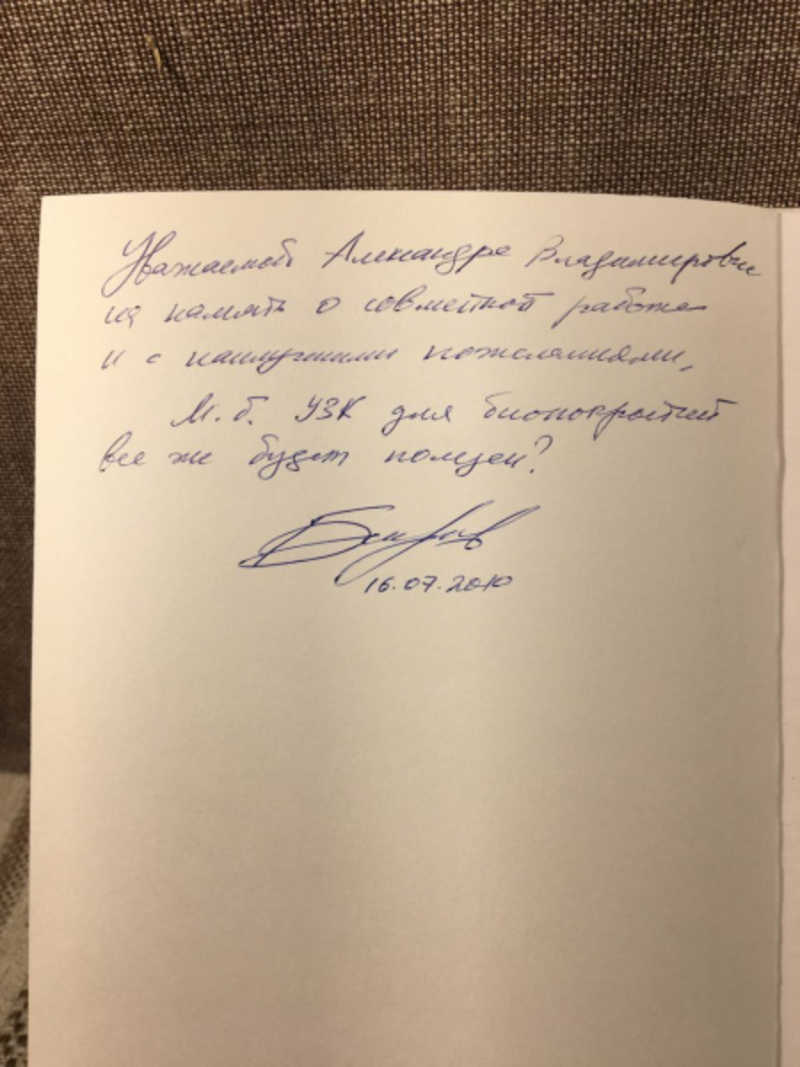 Уважаемой Александре Владимировне
на память о совместной работе
и с наилучшими пожеланиями.
М.б. УЗК для бионокрытий
все же будет полезен?
16.07.2010